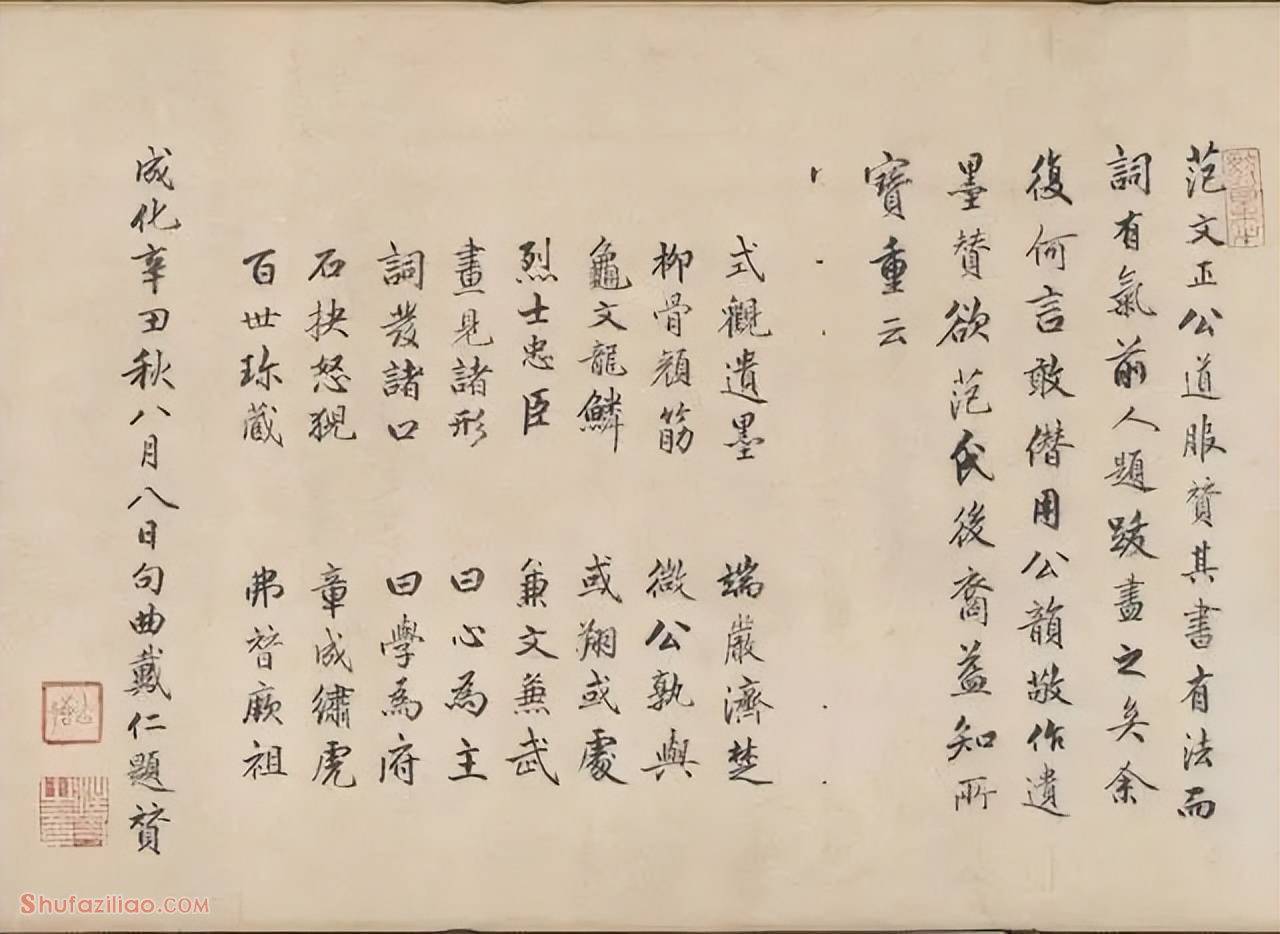 范文正公道服賛其書有法而
詞有氣前人題跋盡之矣余
復何言敢僭用公韻敬作遺
墨賛欲范氏後裔益知所
寶重云
式觀遺墨 端嚴濟楚
柳骨顔筋 微公孰與
龜文龍鱗 或翔或處
烈士忠臣 兼文兼武
畫見諸形 曰心為主
詞發諸口 曰學為府
石抉怒猊 章成繡虎
百世珎藏 弗朁厥祖
成化辛丑秋八月八日句曲戴仁題賛
Shufaziliao.COM